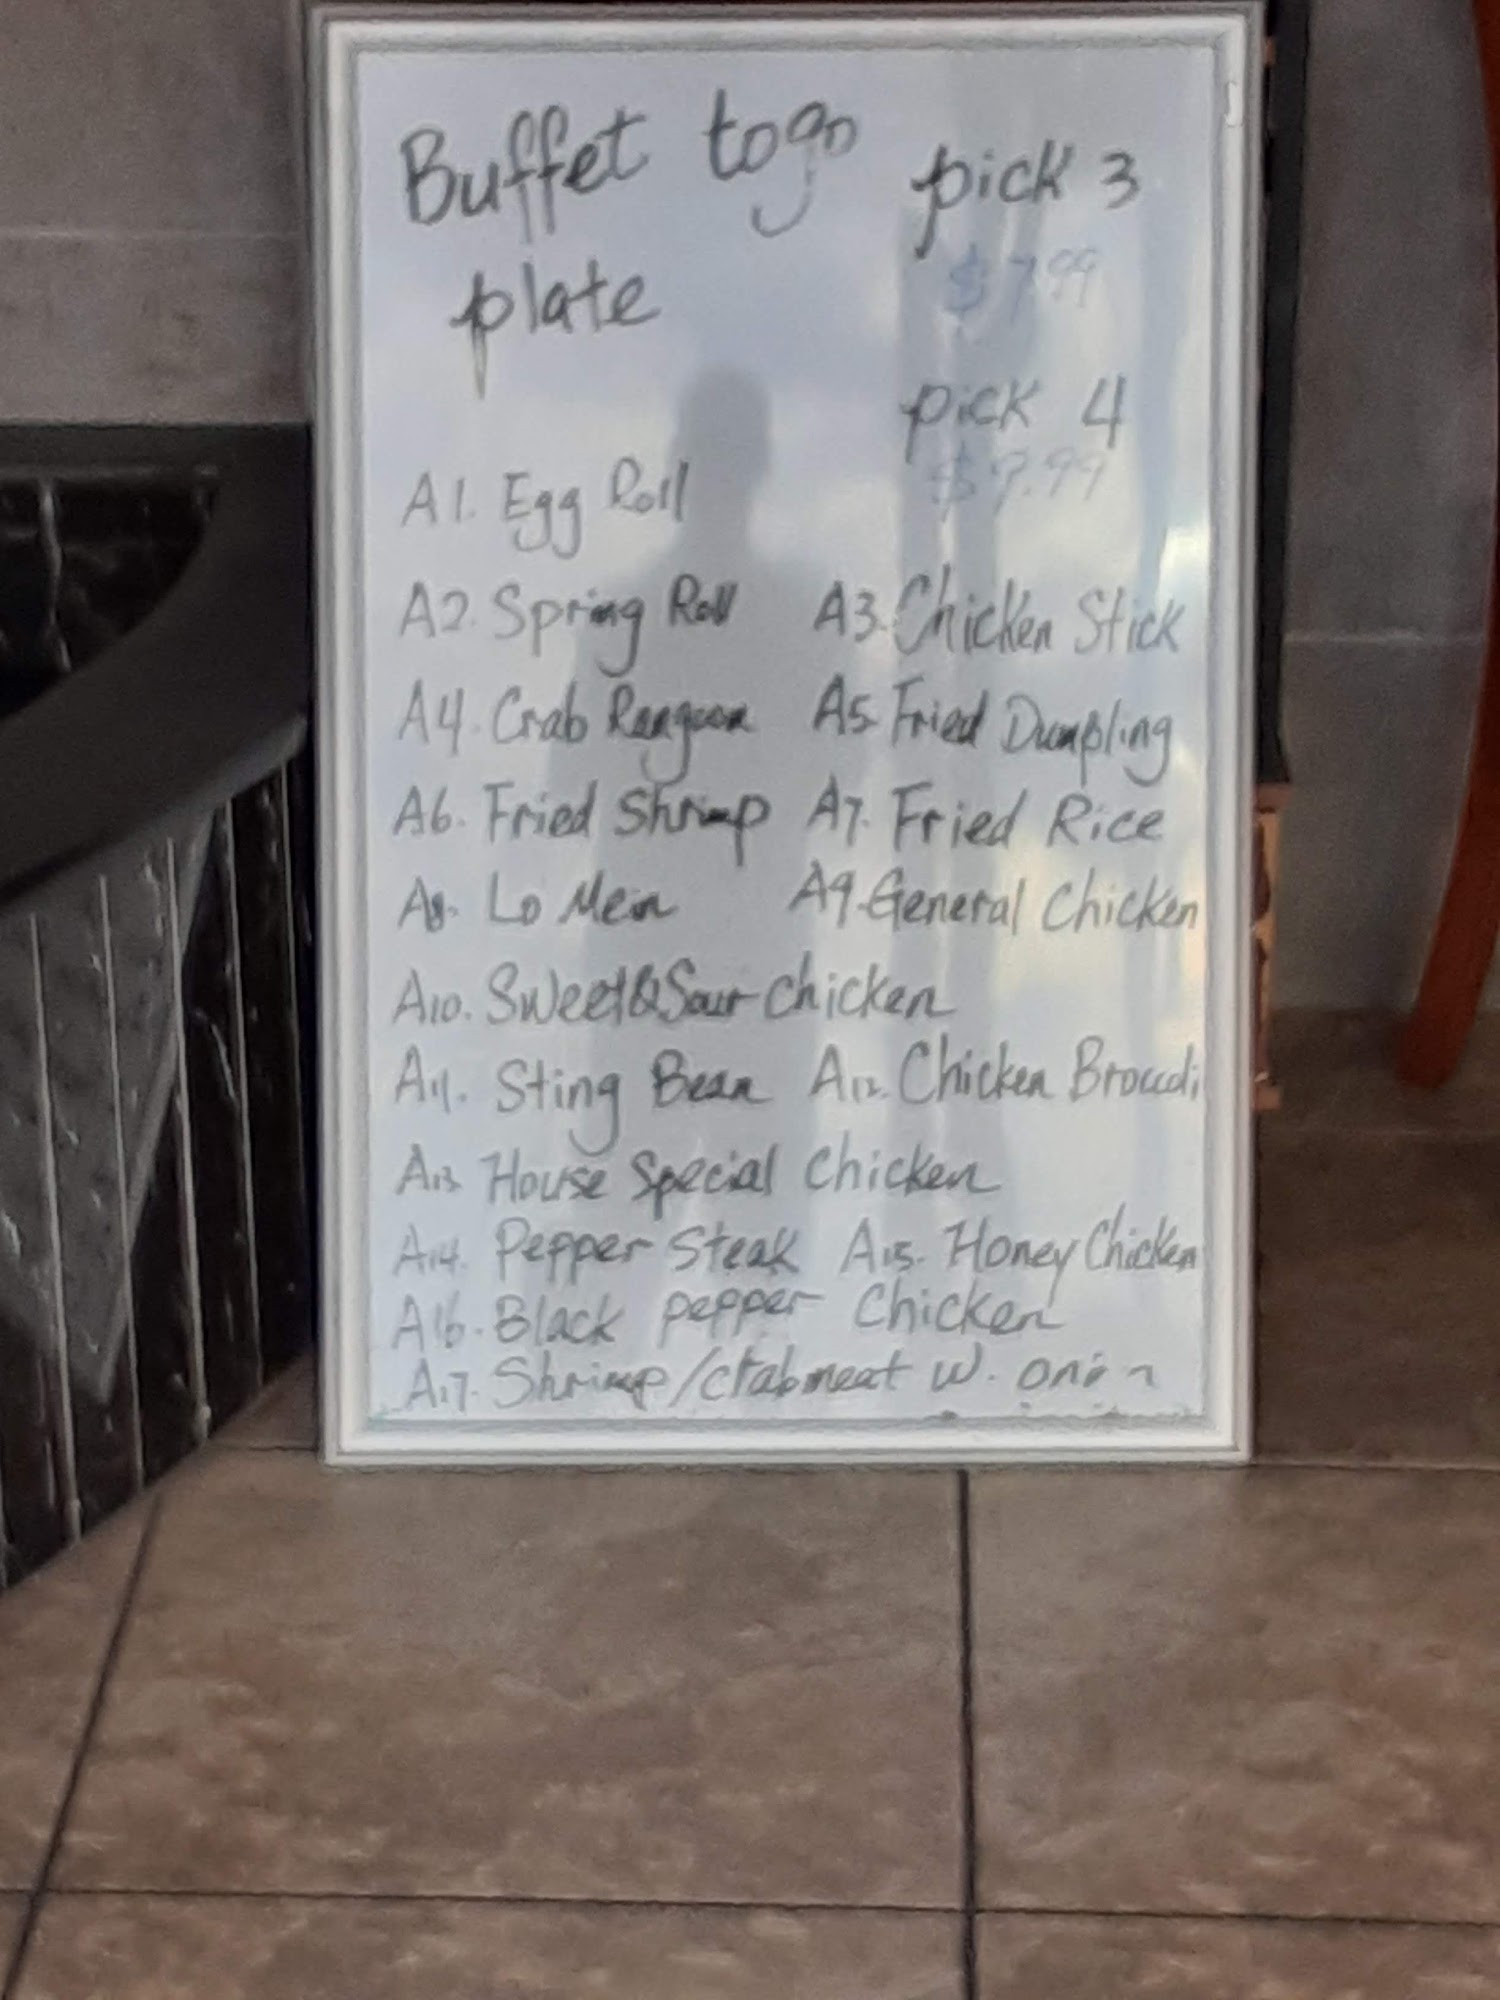 Buffet togo
pick 3
$7.99
plate
pick 4
$9.99
A1. Egg Roll
A2. Spring Roll A3. Chicken Stick
A4. Crab Rangoon A5. Fried Dumpling
A6. Fried Shrimp A7. Fried Rice
A8. Lo Mein A9. General Chicken
A10. Sweet&Sour chicken
A11. Sting Bean A12. Chicken Broccoli
A13. House Special Chicken
A14. Pepper Steak A15. Honey Chicken
A16. Black pepper Chicken
A17. Shrimp/crabmeat w. onion